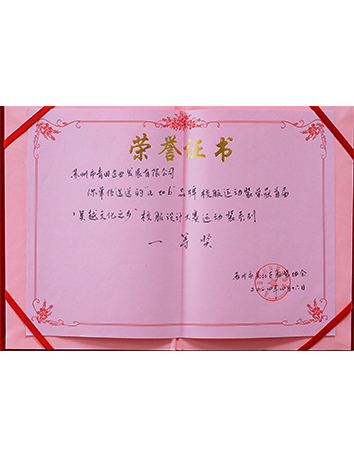 荣誉证书
苏州市青田企业发展有限公司
你单位选送的 品牌校服运动装荣获首届
"吴越文化之乡"校服设计大赛运动装系列
一等奖
苏州市 服装协会
二〇一四年 月十六日